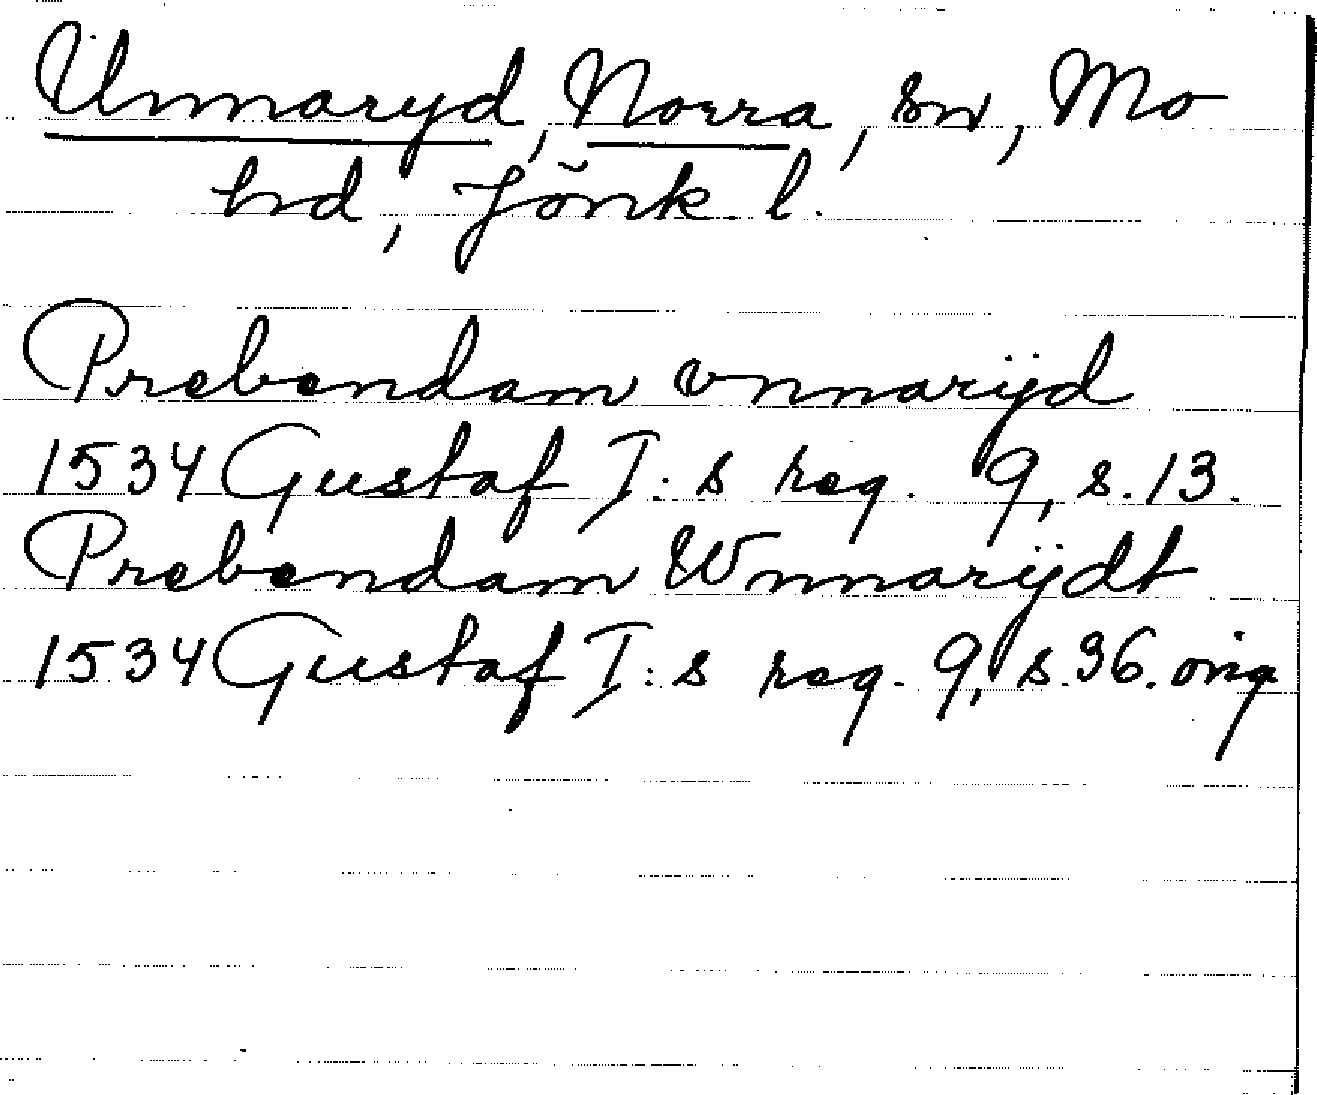 Unnaryd, Norra, sn, Mo
hd, Jönk. l.
Prebendam vnnarijd
1534 Gustaf I:s reg. 9, s. 13.
Prebendam Wnnarijdt
1534 Gustaf I:s reg. 9, s. 36. orig